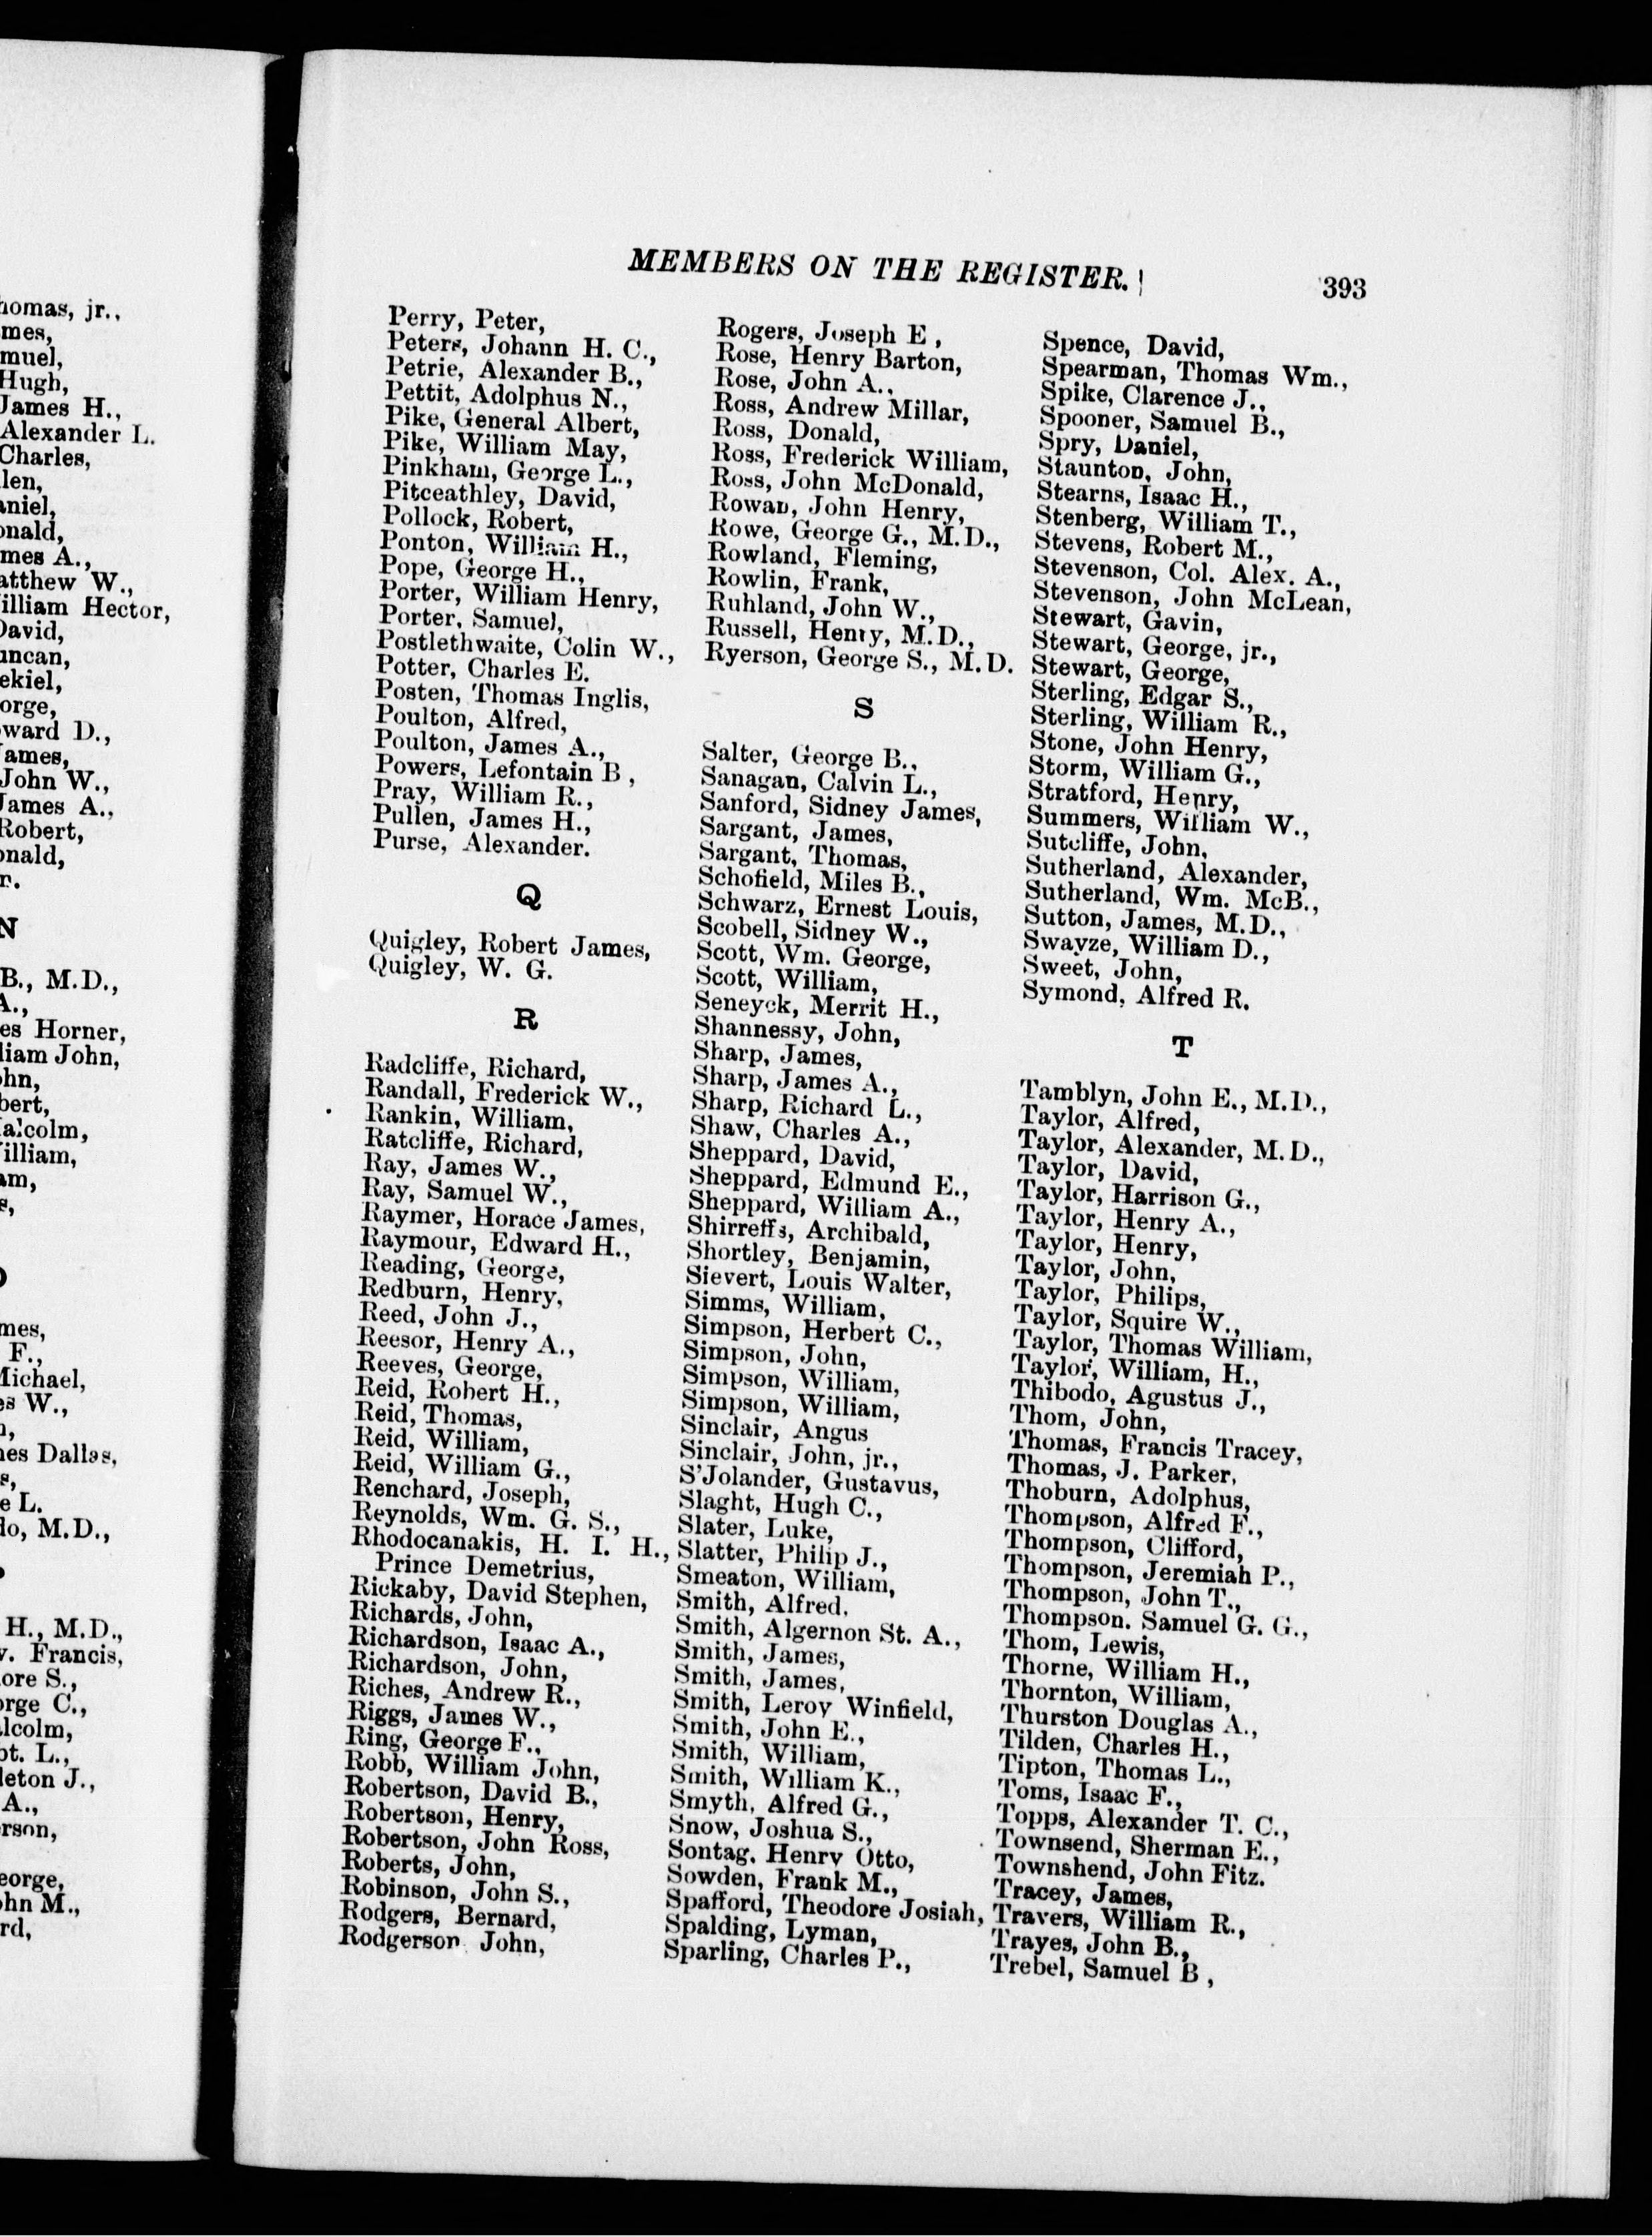 homas, jr.,
mes,
muel,
Hugh,
James H.,
Alexander L.
Charles,
len,
aniel,
onald,
mes A.,
atthew W.,
illiam Hector,
David,
uncan,
ekiel,
orge,
ward D.,
ames,
John W.,
James A.,
Robert,
onald,
r.
N
B., M.D.,
A.,
es Horner,
liam John,
ohn,
bert,
alcolm,
illiam,
am,
s,
mes,
F.,
Michael,
es W.,
nes Dallas,
s,
e L.
do, M.D.,
H., M.D.,
v. Francis,
ore S.,
orge C.,
lcolm,
pt. L.,
leton J.,
A.,
rson,
eorge,
ohn M.,
rd,
MEMBERS ON THE REGISTER.
393
Perry, Peter,
Peters, Johann H. C.,
Petrie, Alexander B.,
Pettit, Adolphus N.,
Pike, General Albert,
Pike, William May,
Pinkham, George L.,
Pitceathley, David,
Pollock, Robert,
Ponton, William H.,
Pope, George H.,
Porter, William Henry,
Porter, Samuel,
Postlethwaite, Colin W.,
Potter, Charles E.
Posten, Thomas Inglis,
Poulton, Alfred,
Poulton, James A.,
Powers, Lefontain B ,
Pray, William R.,
Pullen, James H.,
Purse, Alexander.
Q
Quigley, Robert James,
Quigley, W. G.
R
Radcliffe, Richard,
Randall, Frederick W.,
Rankin, William,
Ratcliffe, Richard,
Ray, James W.,
Ray, Samuel W.,
Raymer, Horace James,
Raymour, Edward H.,
Reading, George,
Redburn, Henry,
Reed, John J.,
Reesor, Henry A.,
Reeves, George,
Reid, Robert H.,
Reid, Thomas,
Reid, William,
Reid, William G.,
Renchard, Joseph,
Reynolds, Wm. G. S.,
Rhodocanakis, H. I. H.,
Prince Demetrius,
Rickaby, David Stephen,
Richards, John,
Richardson, Isaac A.,
Richardson, John,
Riches, Andrew R.,
Riggs, James W.,
Ring, George F.,
Robb, William John,
Robertson, David B.,
Robertson, Henry,
Robertson, John Ross,
Roberts, John,
Robinson, John S.,
Rodgers, Bernard,
Rodgerson John,
Rogers, Joseph E ,
Rose, Henry Barton,
Rose, John A.,
Ross, Andrew Millar,
Ross, Donald,
Ross, Frederick William,
Ross, John McDonald,
Rowan, John Henry,
Rowe, George G., M.D.,
Rowland, Fleming,
Rowlin, Frank,
Ruhland, John W.,
Russell, Henry, M.D.,
Ryerson, George S., M.D.
S
Salter, George B.,
Sanagan, Calvin L.,
Sanford, Sidney James,
Sargant, James,
Sargant, Thomas,
Schofield, Miles B.,
Schwarz, Ernest Louis,
Scobell, Sidney W.,
Scott, Wm. George,
Scott, William,
Seneyck, Merrit H.,
Shannessy, John,
Sharp, James,
Sharp, James A.,
Sharp, Richard L.,
Shaw, Charles A.,
Sheppard, David,
Sheppard, Edmund E.,
Sheppard, William A.,
Shirreffs, Archibald,
Shortley, Benjamin,
Sievert, Louis Walter,
Simms, William,
Simpson, Herbert C.,
Simpson, John,
Simpson, William,
Simpson, William,
Sinclair, Angus
Sinclair, John, jr.,
S'Jolander, Gustavus,
Slaght, Hugh C.,
Slater, Luke,
Slatter, Philip J.,
Smeaton, William,
Smith, Alfred,
Smith, Algernon St. A.,
Smith, James,
Smith, James,
Smith, Leroy Winfield,
Smith, John E.,
Smith, William,
Smith, William K.,
Smyth, Alfred G.,
Snow, Joshua S.,
Sontag, Henry Otto,
Sowden, Frank M.,
Spafford, Theodore Josiah,
Spalding, Lyman,
Sparling, Charles P.,
Spence, David,
Spearman, Thomas Wm.,
Spike, Clarence J.,
Spooner, Samuel B.,
Spry, Daniel,
Staunton, John,
Stearns, Isaac H.,
Stenberg, William T.,
Stevens, Robert M.,
Stevenson, Col. Alex. A.,
Stevenson, John McLean,
Stewart, Gavin,
Stewart, George, jr.,
Stewart, George,
Sterling, Edgar S.,
Sterling, William R.,
Stone, John Henry,
Storm, William G.,
Stratford, Henry,
Summers, William W.,
Sutcliffe, John,
Sutherland, Alexander,
Sutherland, Wm. McB.,
Sutton, James, M.D.,
Swayze, William D.,
Sweet, John,
Symond, Alfred R.
T
Tamblyn, John E., M.D.,
Taylor, Alfred,
Taylor, Alexander, M.D.,
Taylor, David,
Taylor, Harrison G.,
Taylor, Henry A.,
Taylor, Henry,
Taylor, John,
Taylor, Philips,
Taylor, Squire W.,
Taylor, Thomas William,
Taylor, William, H.,
Thibodo, Agustus J.,
Thom, John,
Thomas, Francis Tracey,
Thomas, J. Parker,
Thoburn, Adolphus,
Thompson, Alfred F.,
Thompson, Clifford,
Thompson, Jeremiah P.,
Thompson, John T.,
Thompson. Samuel G. G.,
Thom, Lewis,
Thorne, William H.,
Thornton, William,
Thurston Douglas A.,
Tilden, Charles H.,
Tipton, Thomas L.,
Toms, Isaac F.,
Topps, Alexander T. C.,
Townsend, Sherman E.,
Townshend, John Fitz.
Tracey, James,
Travers, William R.,
Trayes, John B.,
Trebel, Samuel B ,